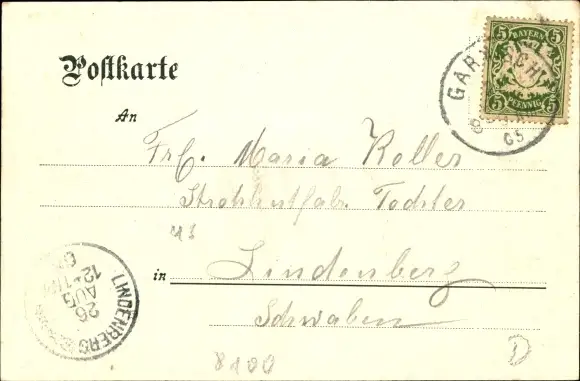 Postkarte
5 BAYERN 5
5 PFENNIG 5
GARMISCH
05
An
Frl. Maria Koller
Strohhutfabr. Tochter
in Lindenberg
Schwaben
LINDENBERG
26
AUG
12-1
8100
D